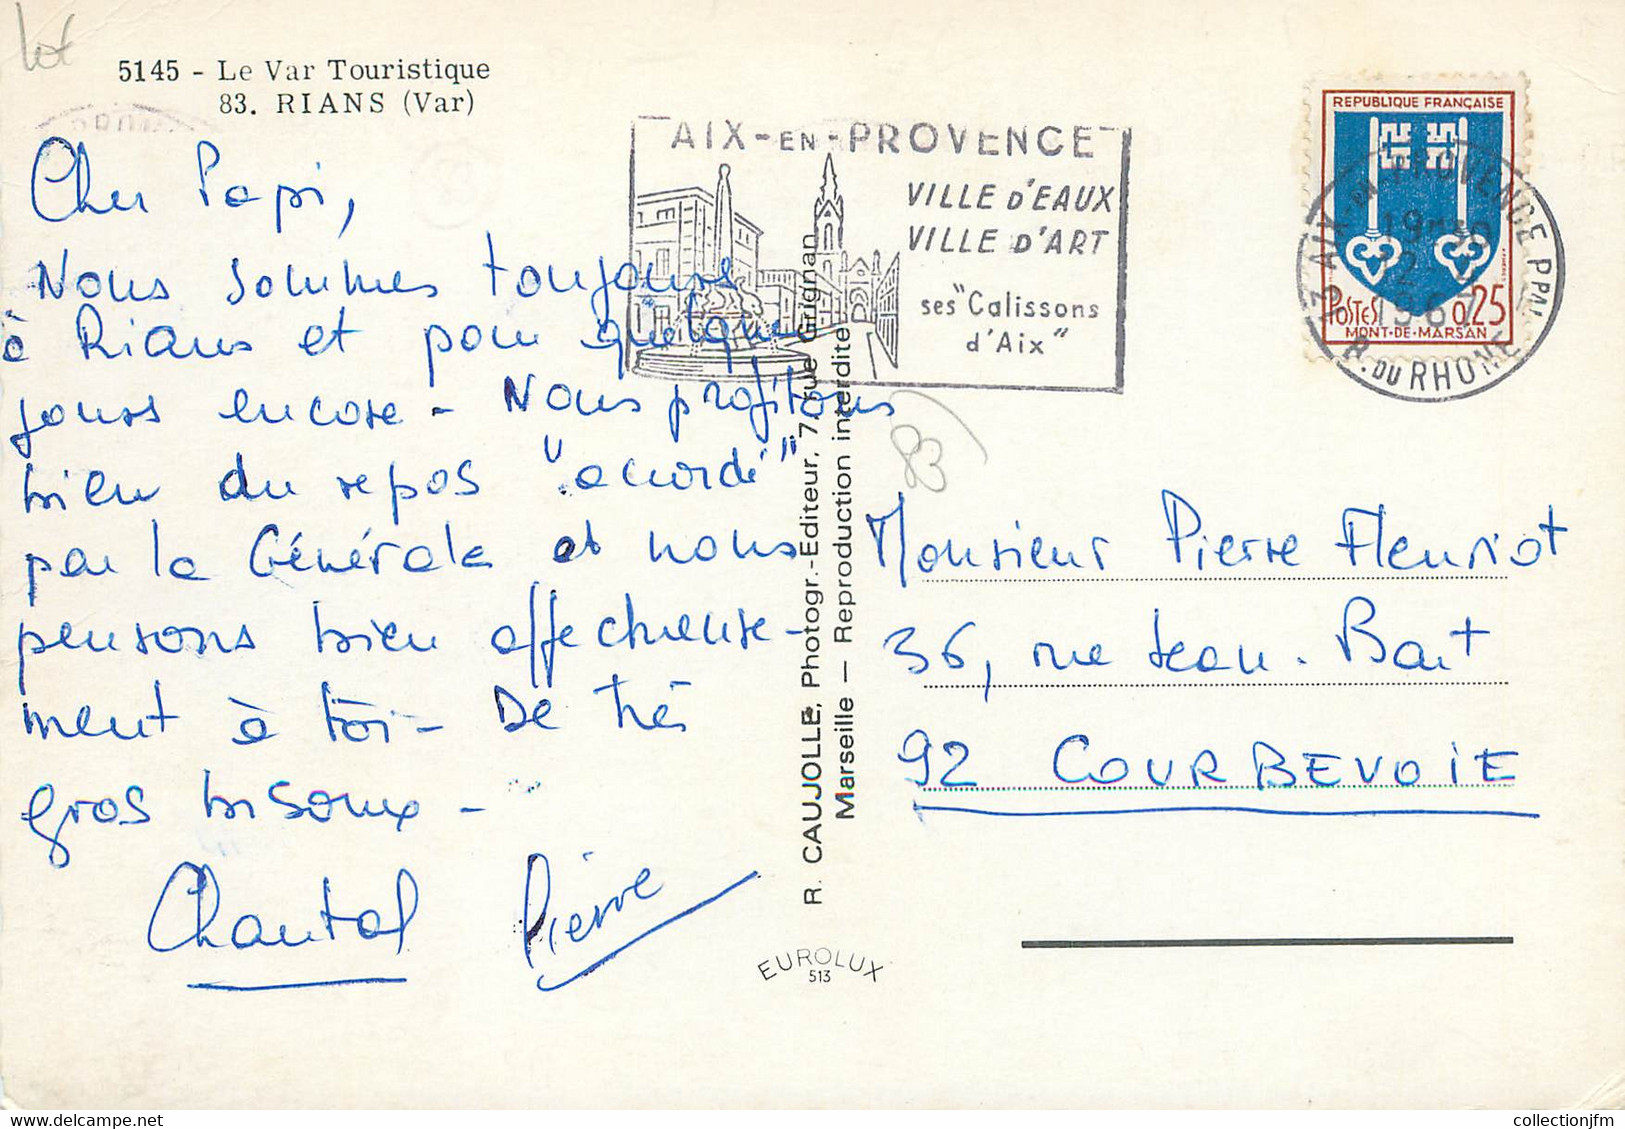 5145 - Le Var Touristique
83. RIANS (Var)
Cher Papi,
Nous sommes toujours
à Rians et pour quelques
jours encore - Nous profitons
bien du repos "accordé"
par la Générale et nous
pensons bien affectueuse-
ment à toi - De très
gros bisoux -
Chantal Pierre
AIX-EN-PROVENCE
VILLE D'EAUX
VILLE D'ART
ses "Calissons
d'Aix"
REPUBLIQUE FRANÇAISE
POSTES 0,25
MONT-DE-MARSAN
13 AIX-EN-PROVENCE PPAL
B. DU RHONE
83
R. CAUJOLLE, Photogr.-Editeur, 7, rue Grignan
Marseille — Reproduction interdite
Monsieur Pierre Fleuriot
36, rue Jean-Bart
92 COURBEVOIE
EUROLUX
513
collectionjfm